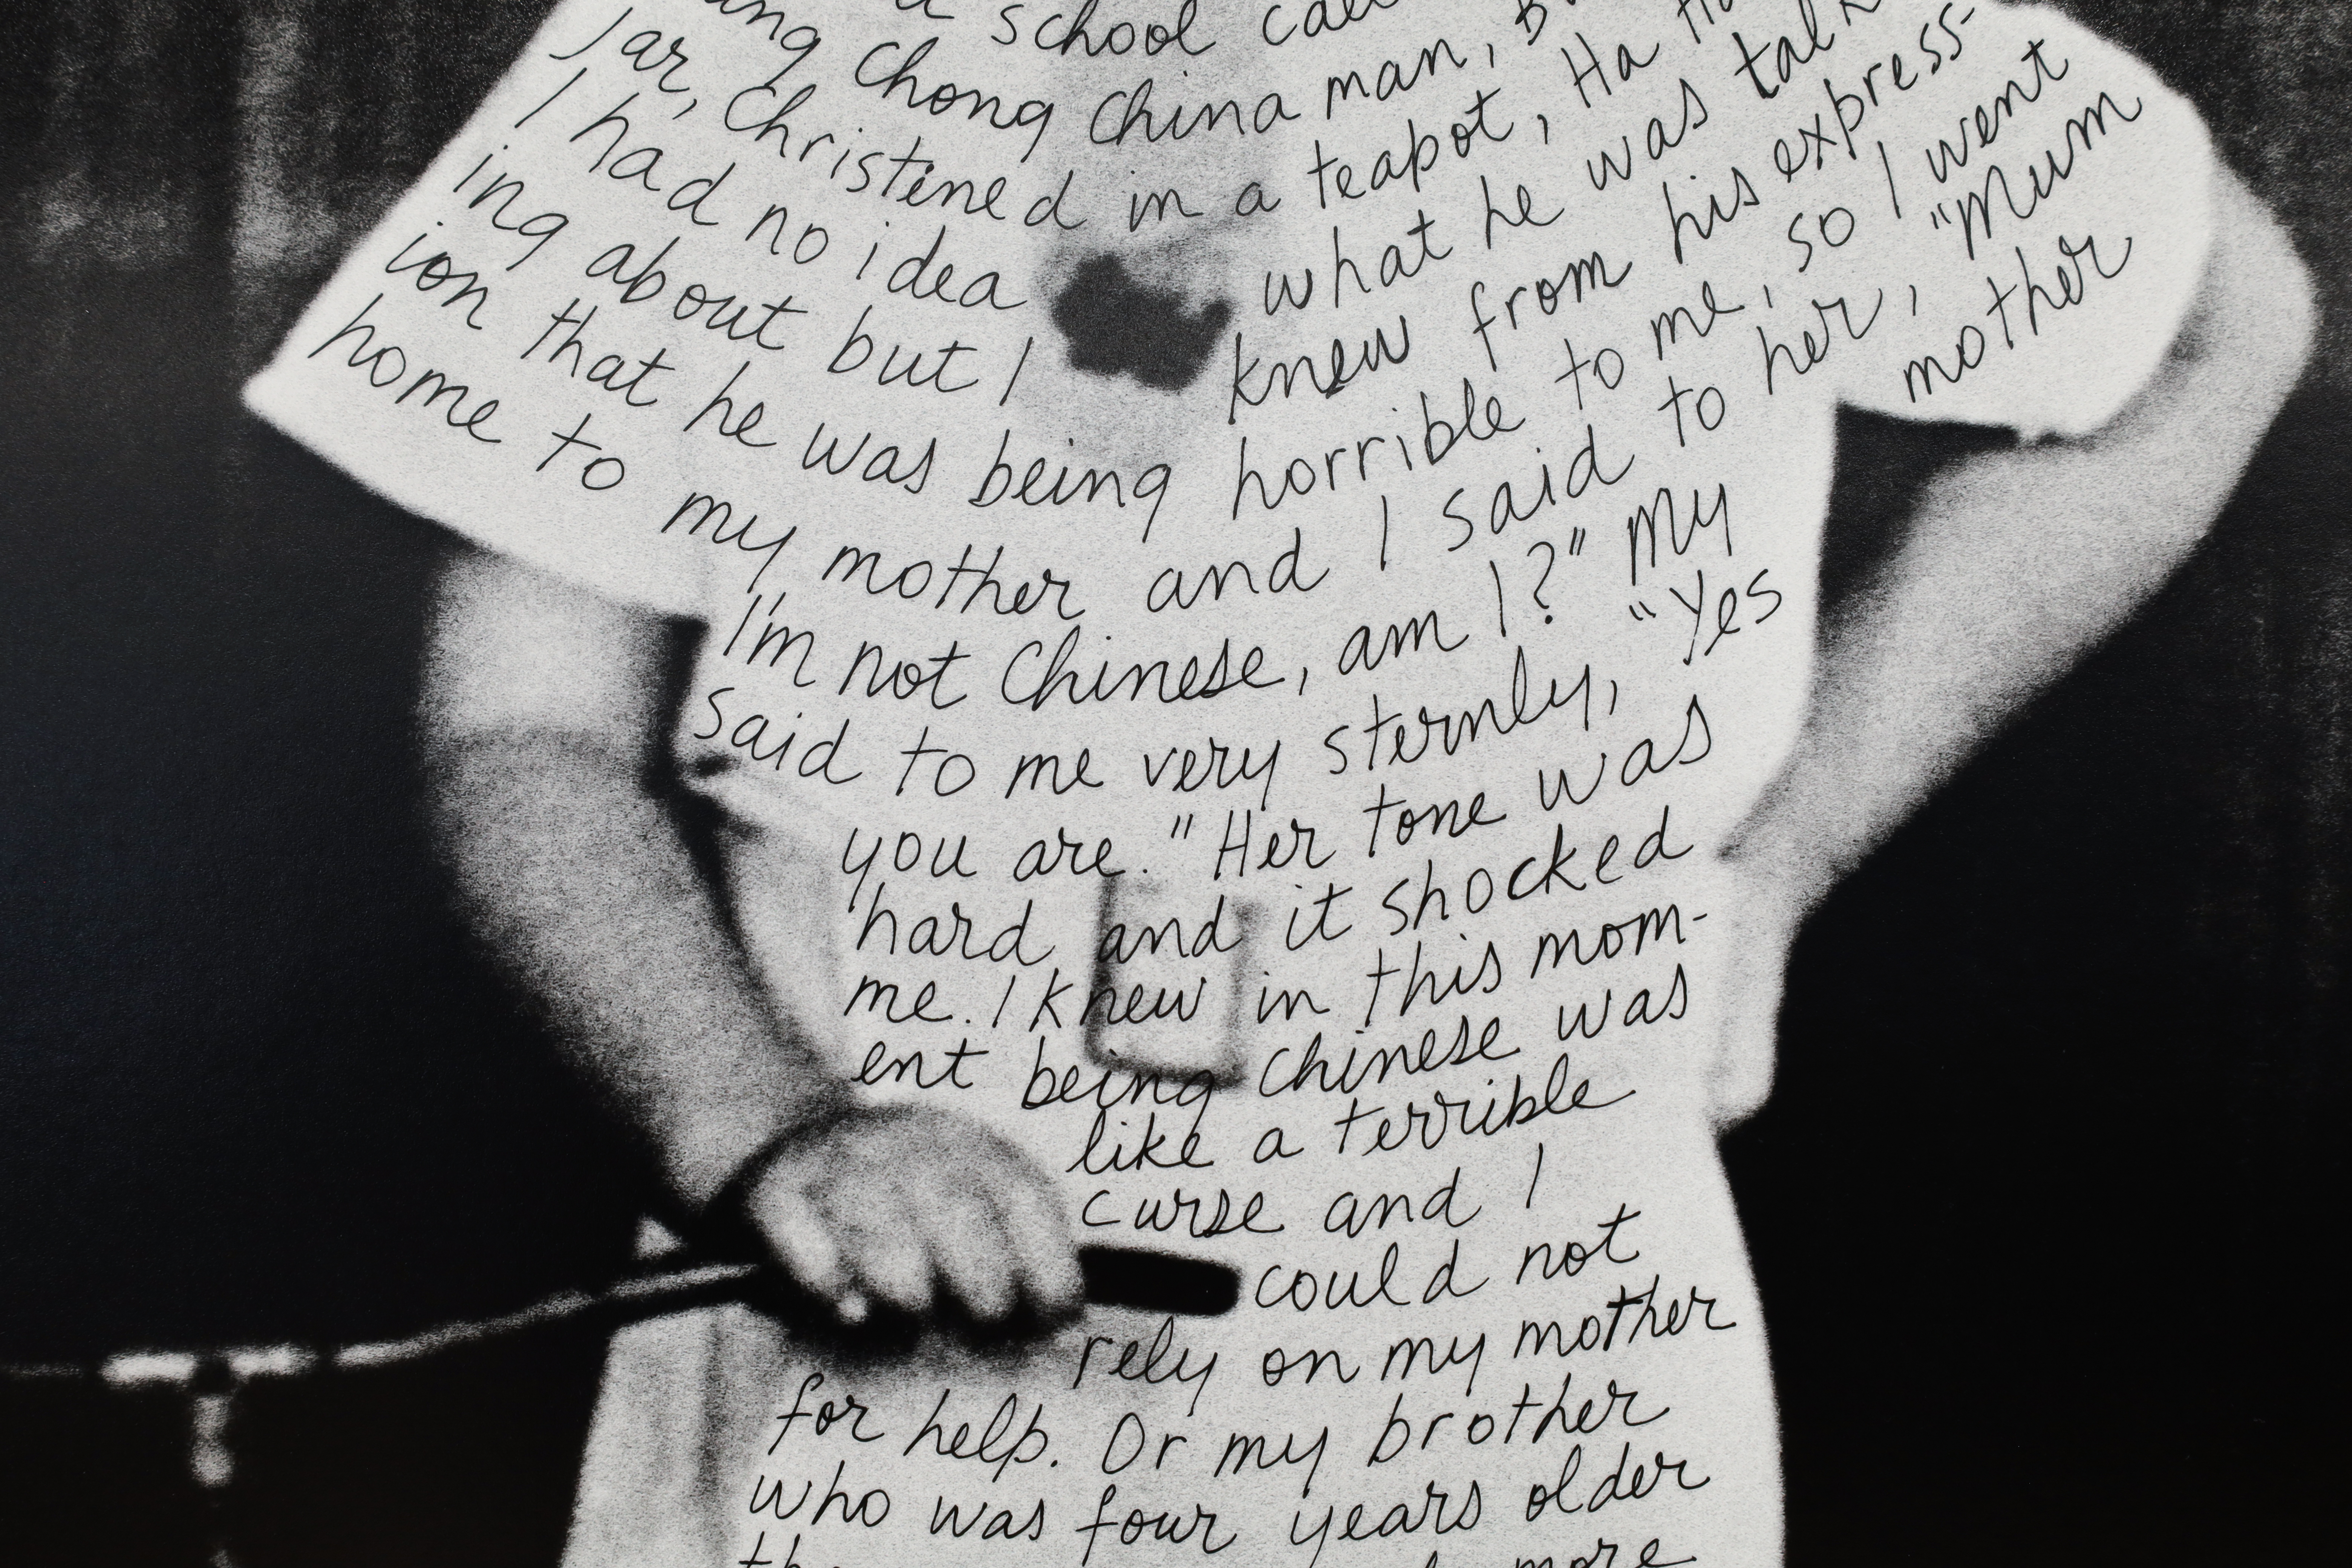 school
Chong China man,
Jar, Christened in a teapot, Ha
I had no idea what he was talk-
ing about but I knew from his express-
ion that he was being horrible to me, so I went
home to my mother and I said to her, "Mum
I'm not Chinese, am I?" My mother
said to me very sternly, "Yes
you are." Her tone was
hard and it shocked
me. I knew in this mom-
ent being Chinese was
like a terrible
curse and I
could not
rely on my mother
for help. Or my brother
who was four years older
more